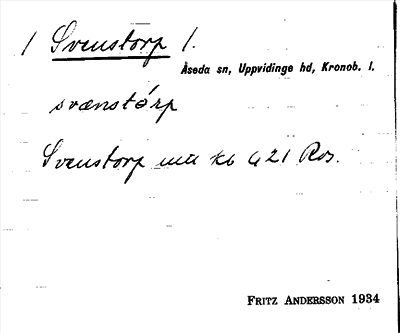 / Svenstorp /.
Åseda sn, Uppvidinge hd, Kronob. l.
svænstårp
Svenstorp mtl kb G 21 Ros.
FRITZ ANDERSSON 1934